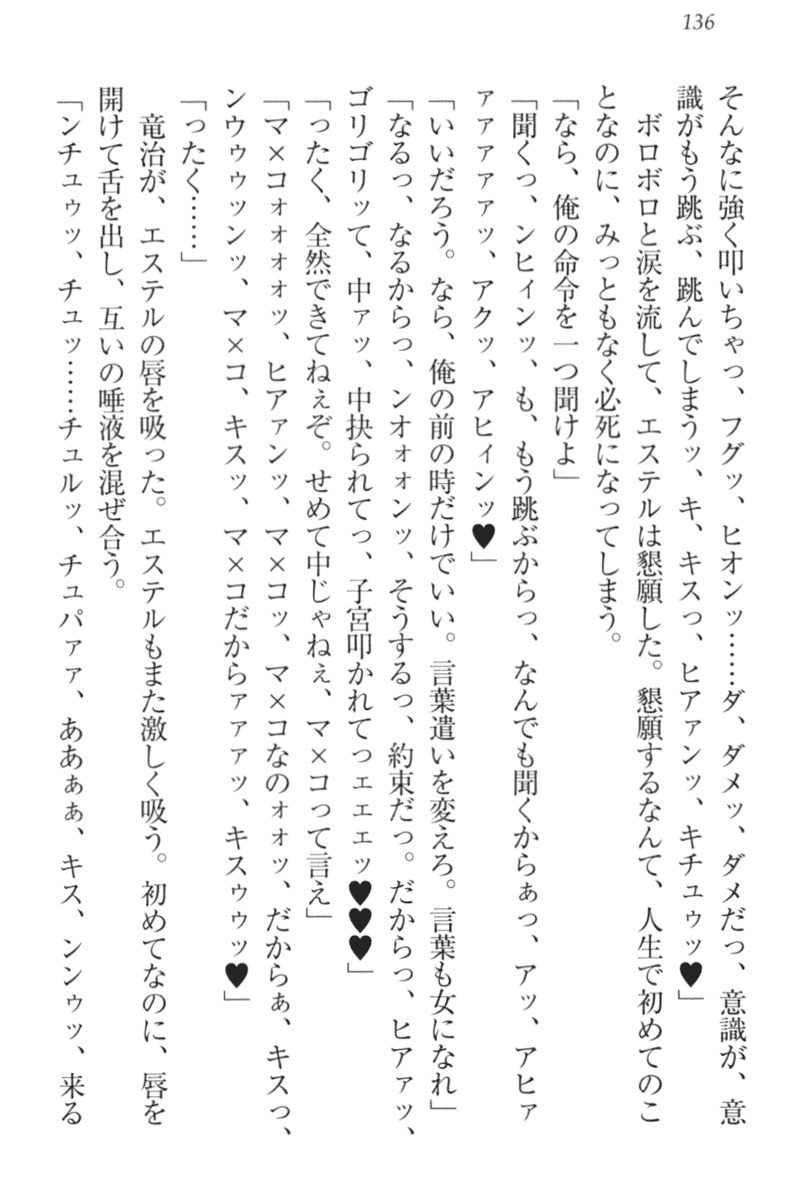 136
そんなに強く叩いちゃっ、フグッ、ヒオンッ……ダ、ダメッ、ダメだっ、意識が、意
識がもう跳ぶ、跳んでしまうッ、キ、キスっ、ヒアァンッ、キチュゥッ♥」
ボロボロと涙を流して、エステルは懇願した。懇願するなんて、人生で初めてのこ
となのに、みっともなく必死になってしまう。
「なら、俺の命令を一つ聞けよ」
「聞くっ、ンヒィンッ、も、もう跳ぶからっ、なんでも聞くからぁっ、アッ、アヒァ
ァァァァァッ、アクッ、アヒィンッ♥」
「いいだろう。なら、俺の前の時だけでいい。言葉遣いを変えろ。言葉も女になれ」
「なるっ、なるからっ、ンオォォンッ、そうするっ、約束だっ。だからっ、ヒアァッ、
ゴリゴリッて、中ァッ、中抉られてっ、子宮叩かれてっェェェッ♥♥♥」
「ったく、全然できてねぇぞ。せめて中じゃねぇ、マ×コって言え」
「マ×コォォォォッ、ヒアァンッ、マ×コッ、マ×コなのォォッ、だからぁ、キスっ、
ンウゥゥッンッ、マ×コ、キスッ、マ×コだからァァァッ、キスゥゥッ♥」
「ったく……」
竜治が、エステルの唇を吸った。エステルもまた激しく吸う。初めてなのに、唇を
開けて舌を出し、互いの唾液を混ぜ合う。
「ンチュゥッ、チュッ……チュルッ、チュパァァ、あぁぁぁ、キス、ンンゥッ、来る